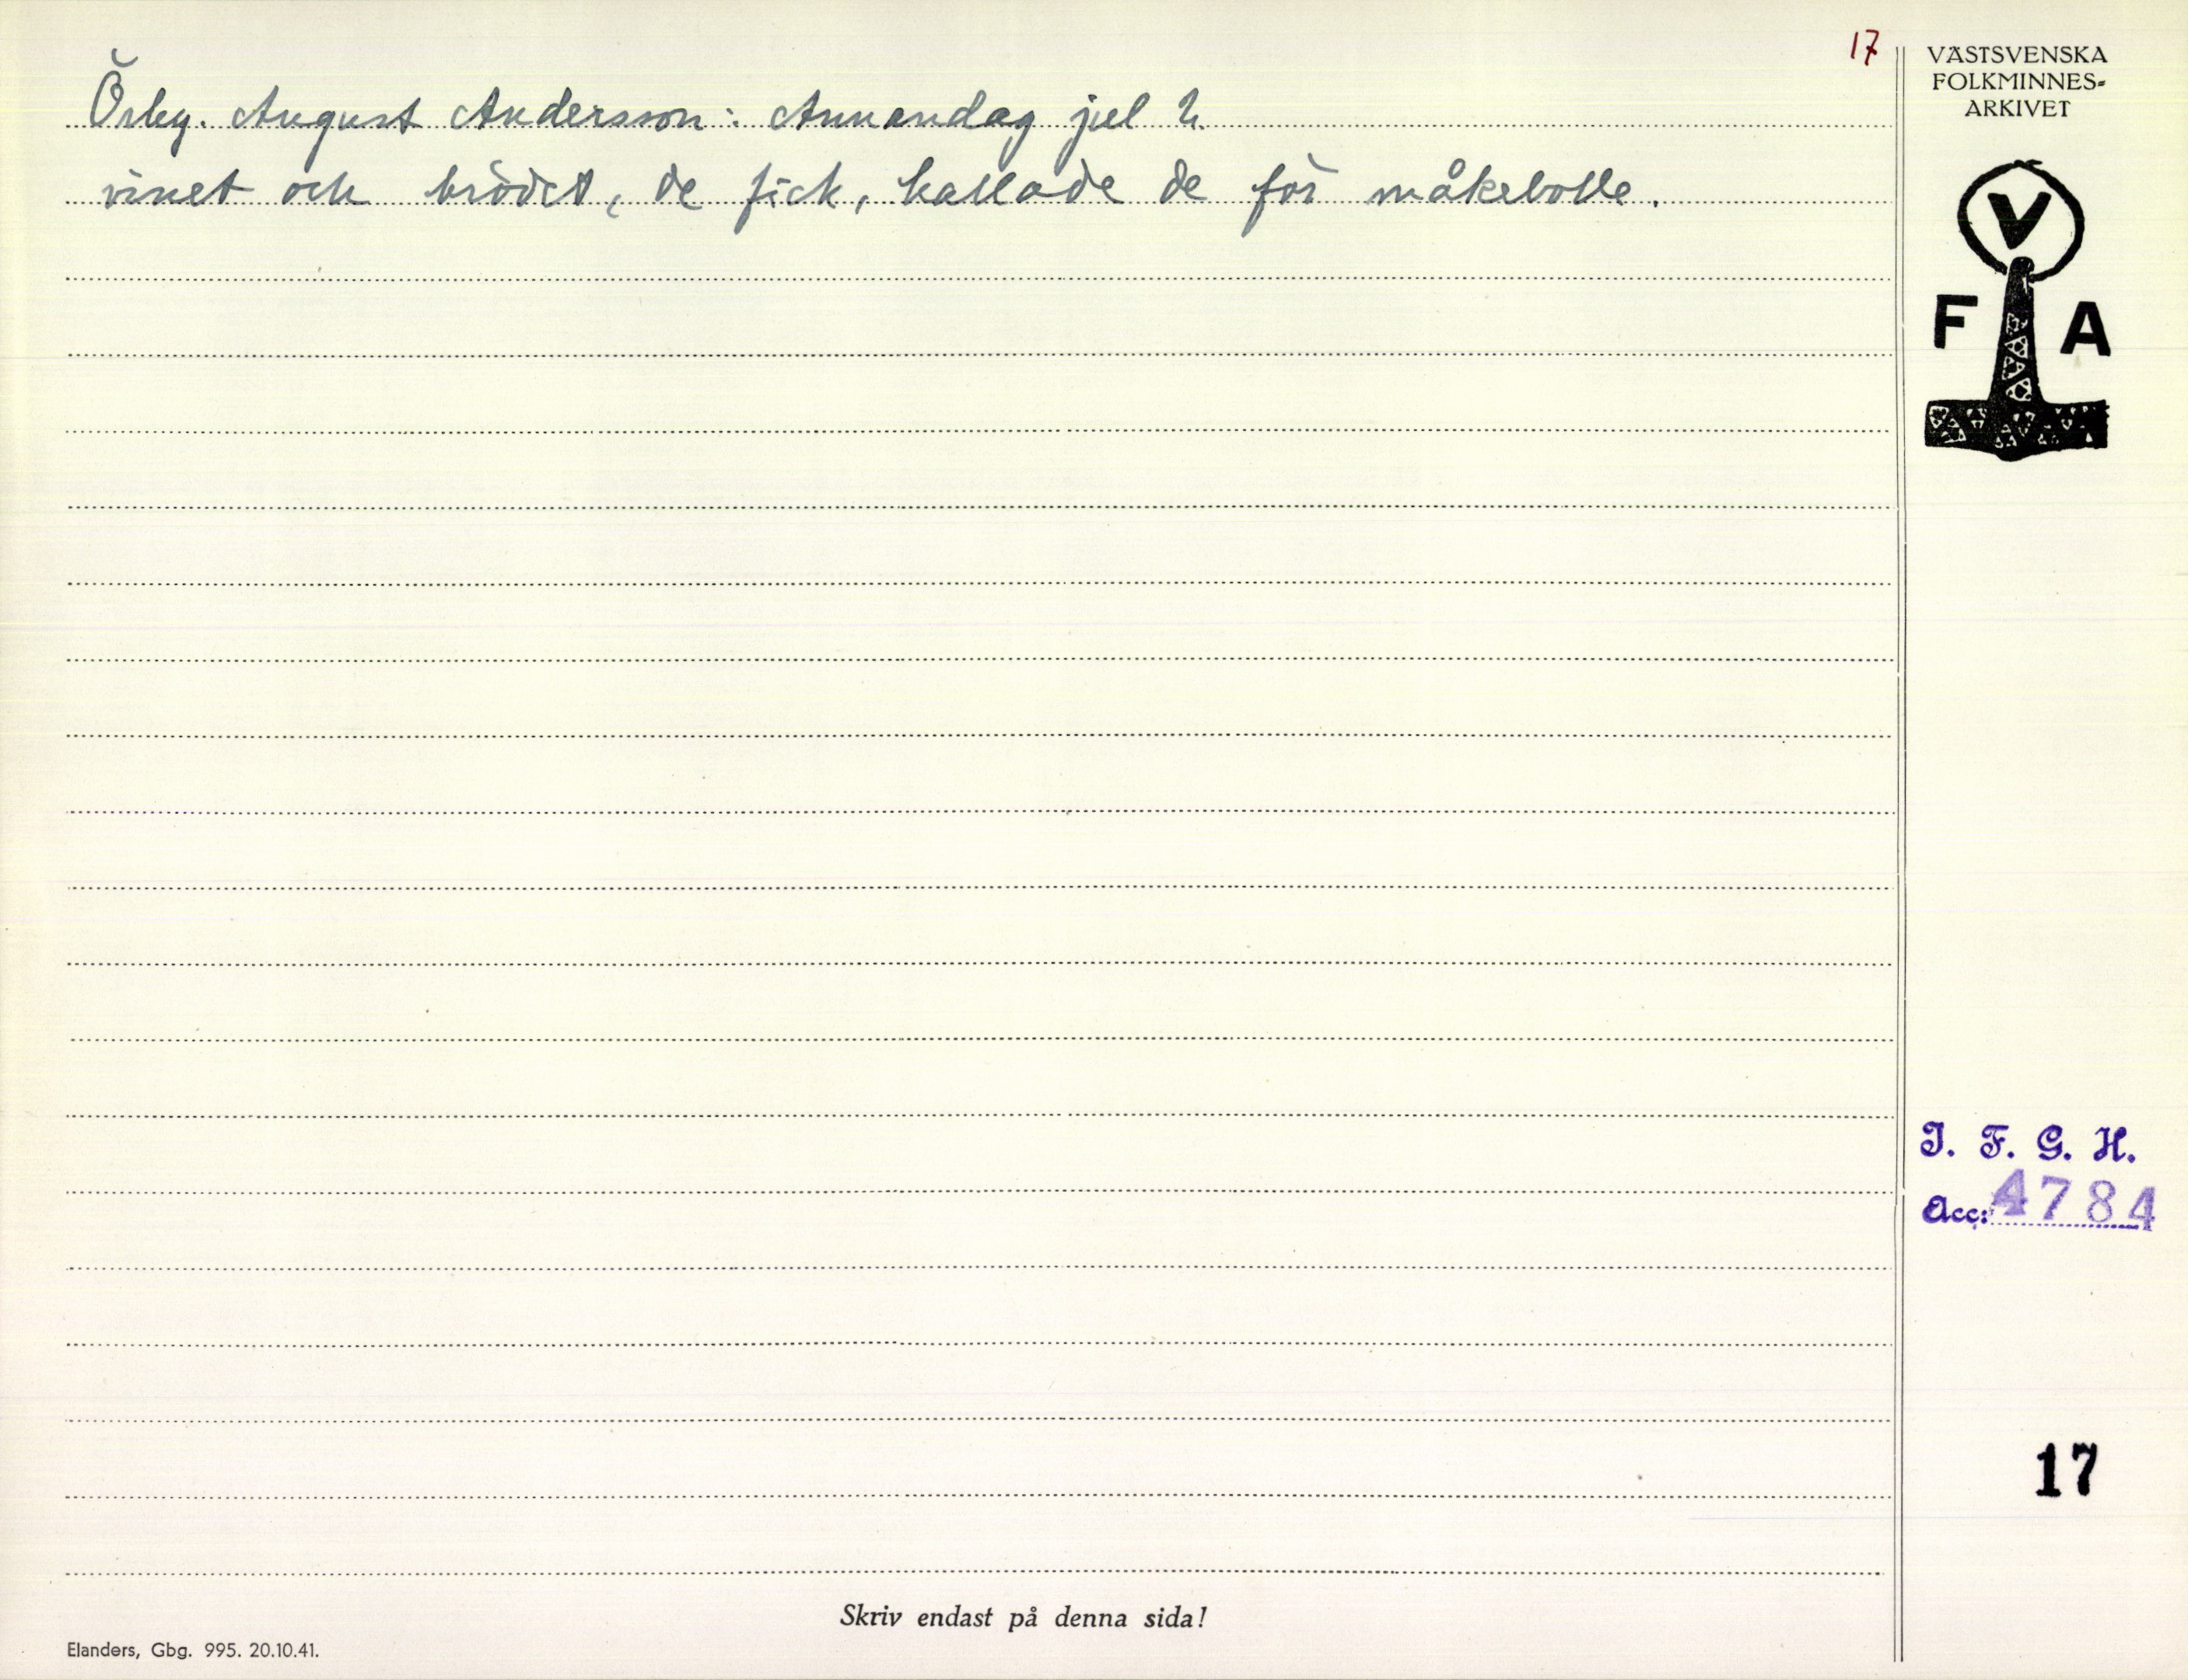 17
VÄSTSVENSKA
FOLKMINNES-
ARKIVET
Örby. August Andersson: Annandag jul 2.
vinet och brödet, de fick, kallade de för måkebolle.
V
F A
I. F. G. H.
Acc: 4784
17
Skriv endast på denna sida!
Elanders, Gbg. 995. 20.10.41.